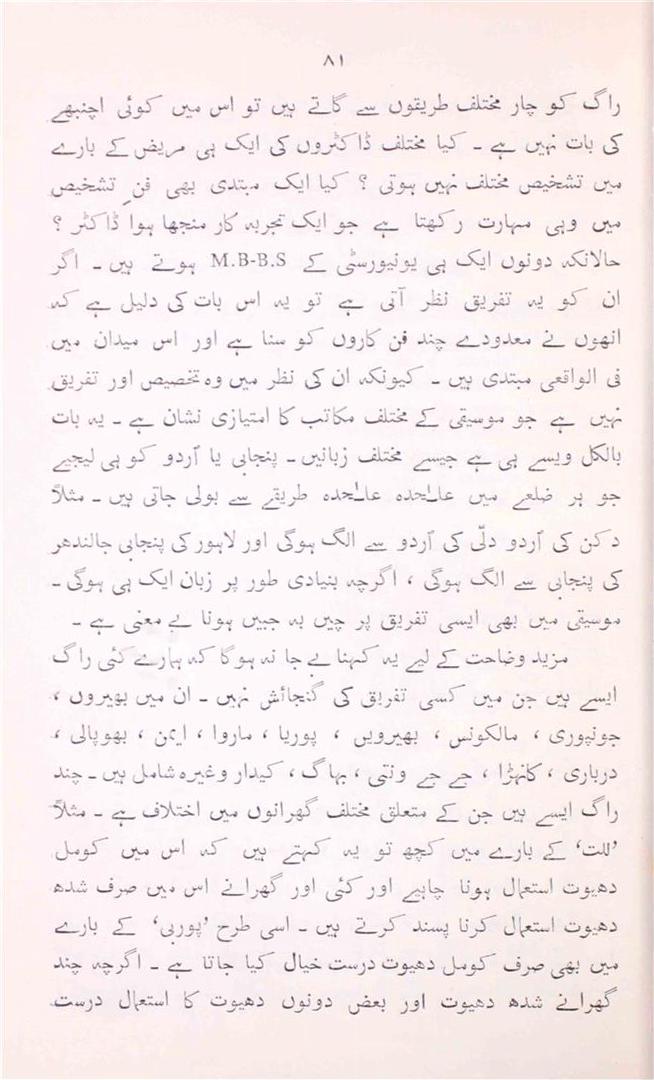 ۸۱
راگ کو چار مختلف طریقوں سے گاتے ہیں تو اس میں کوئی اچنبھے
کی بات نہیں ہے ۔ کیا مختلف ڈاکٹروں کی ایک ہی مریض کے بارے
میں تشخیص مختلف نہیں ہوتی ؟ کیا ایک مبتدی بھی فنِ تشخیص
میں وہی مہارت رکھتا ہے جو ایک تجربہ کار منجھا ہوا ڈاکٹر ؟
حالانکہ دونوں ایک ہی یونیورسٹی کے M.B-B.S ہوتے ہیں ۔ اگر
ان کو یہ تفریق نظر آتی ہے تو یہ اس بات کی دلیل ہے کہ
انھوں نے معدودے چند فن کاروں کو سنا ہے اور اس میدان میں
فی الواقعی مبتدی ہیں ۔ کیونکہ ان کی نظر میں وہ تخصیص اور تفریق
نہیں ہے جو موسیقی کے مختلف مکاتب کا امتیازی نشان ہے ۔ یہ بات
بالکل ویسے ہی ہے جیسے مختلف زبانیں ۔ پنجابی یا اُردو کو ہی لیجیے
جو ہر ضلعے میں علیٰحدہ علیٰحدہ طریقے سے بولی جاتی ہیں ۔ مثلاً
دکن کی اُردو دلّی کی اُردو سے الگ ہوگی اور لاہور کی پنجابی جالندھر
کی پنجابی سے الگ ہوگی ، اگرچہ بنیادی طور پر زبان ایک ہی ہوگی ۔
موسیقی میں بھی ایسی تفریق پر چیں بہ جبیں ہونا بے معنی ہے ۔
مزید وضاحت کے لیے یہ کہنا بے جا نہ ہوگا کہ ہمارے کئی راگ
ایسے ہیں جن میں کسی تفریق کی گنجائش نہیں ۔ ان میں بھیروں ،
جونپوری ، مالکونس ، بھیرویں ، پوریا ، ماروا ، ایمن ، بھوپالی ،
درباری ، کانہڑا ، جے جے ونتی ، بہاگ ، کیدار وغیرہ شامل ہیں ۔ چند
راگ ایسے ہیں جن کے متعلق مختلف گھرانوں میں اختلاف ہے ۔ مثلاً
’للت‘ کے بارے میں کچھ تو یہ کہتے ہیں کہ اس میں کومل
دھیوت استعمال ہونا چاہیے اور کئی اور گھرانے اس میں صرف شدھ
دھیوت استعمال کرنا پسند کرتے ہیں ۔ اسی طرح ’پوربی‘ کے بارے
میں بھی صرف کومل دھیوت درست خیال کیا جاتا ہے ۔ اگرچہ چند
گھرانے شدھ دھیوت اور بعض دونوں دھیوت کا استعمال درست